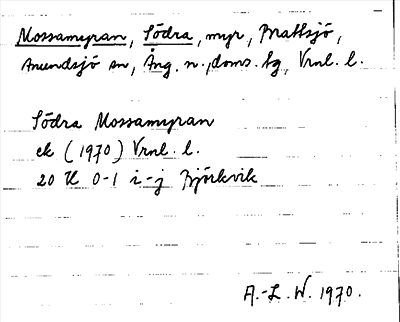 Mossamyran, Södra, myr, Brattsjö,
Anundsjö sn, Ång. n., doms. tg, Vrnl. l.
Södra Mossamyran
ek (1970) Vrnl. l.
20 H 0-1 i-j Björkvik
A.-L. W. 1970.